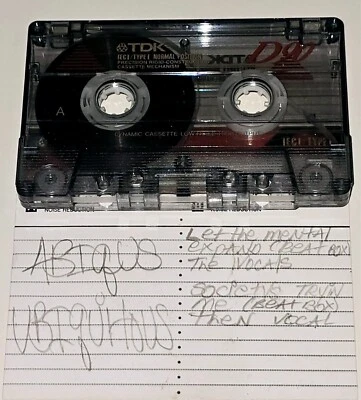 TDK
D90
IECI·TYPE I NORMAL POSITION
PRECISION RIGID CONSTRUCTION
CASSETTE MECHANISM
A
DYNAMIC CASSETTE
IECI TYPE I
NOISE REDUCTION
NOISE REDUCTION
ABIQUS
UBIQUITOUS
LET the MENTAL
EXPAND (BEAT BOX)
THE VOCALS
SOCIETYS TRYIN
ME (BEAT BOX)
THEN VOCAL